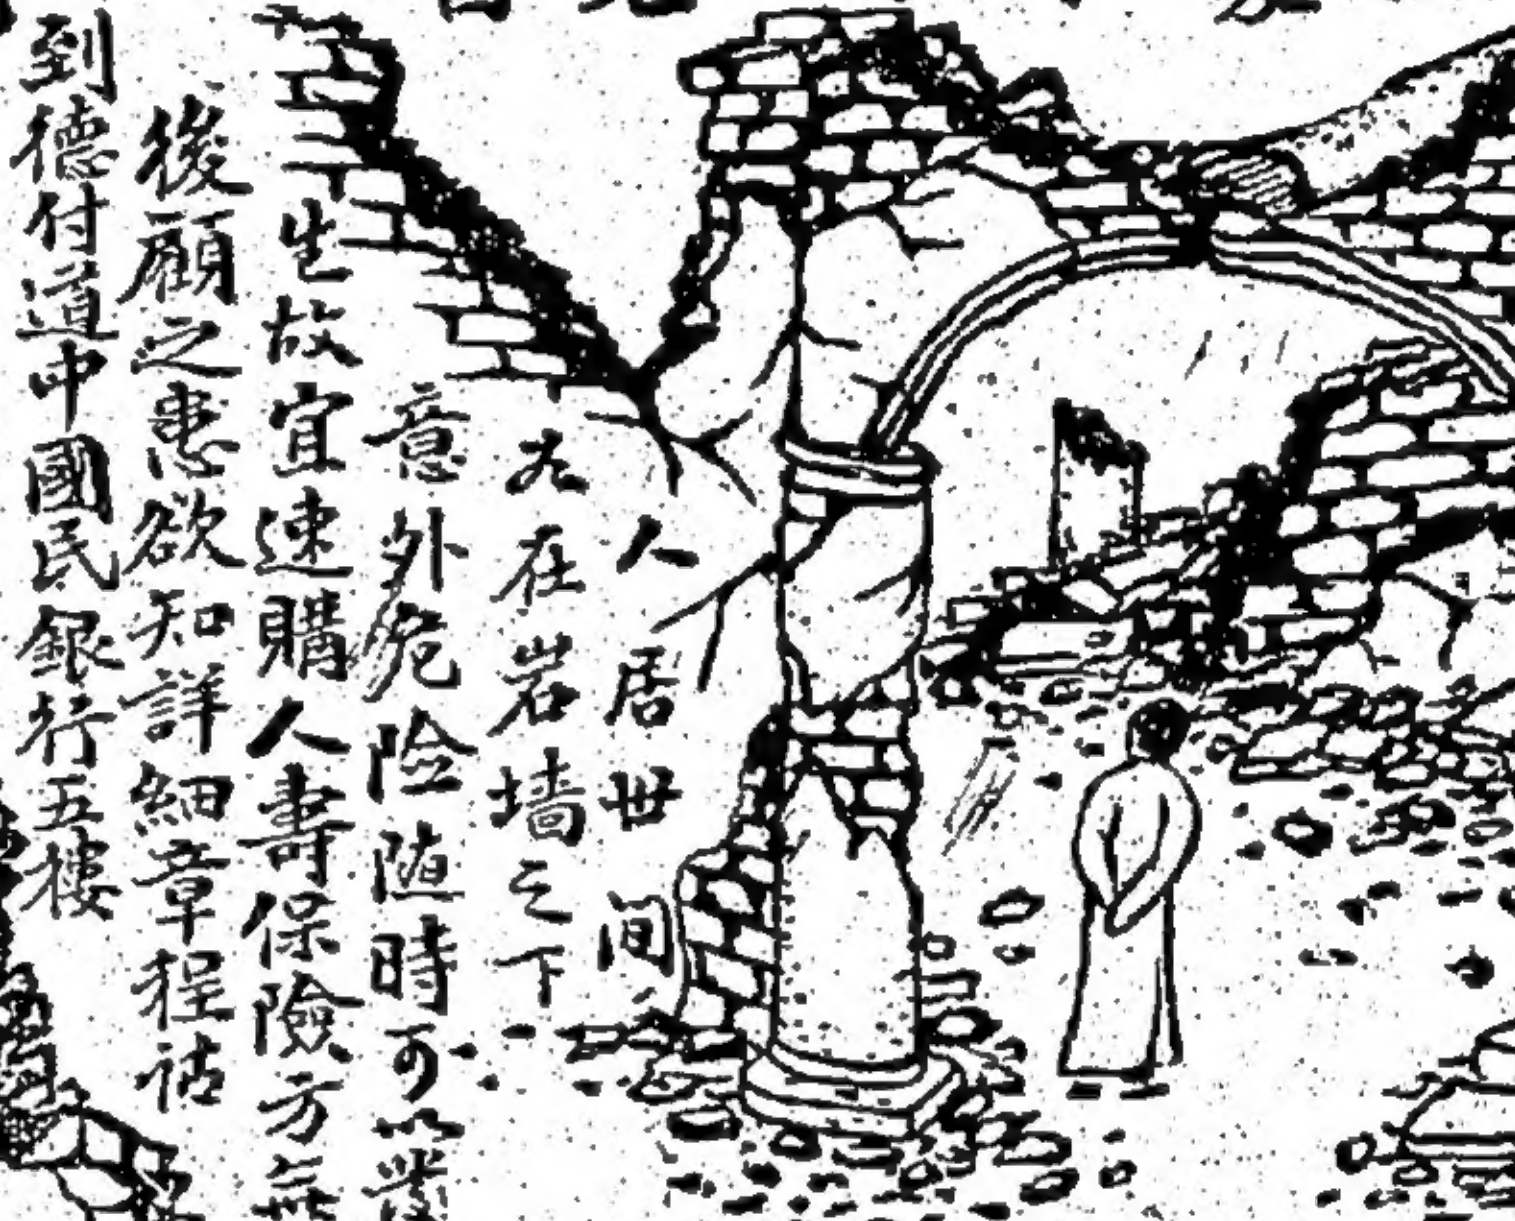 人居世间
在岩墙之下
意外危險随時可以發
生故宜速購人壽保險方無
後顧之患欲知詳細章程祜
到德付道中國民銀行五樓